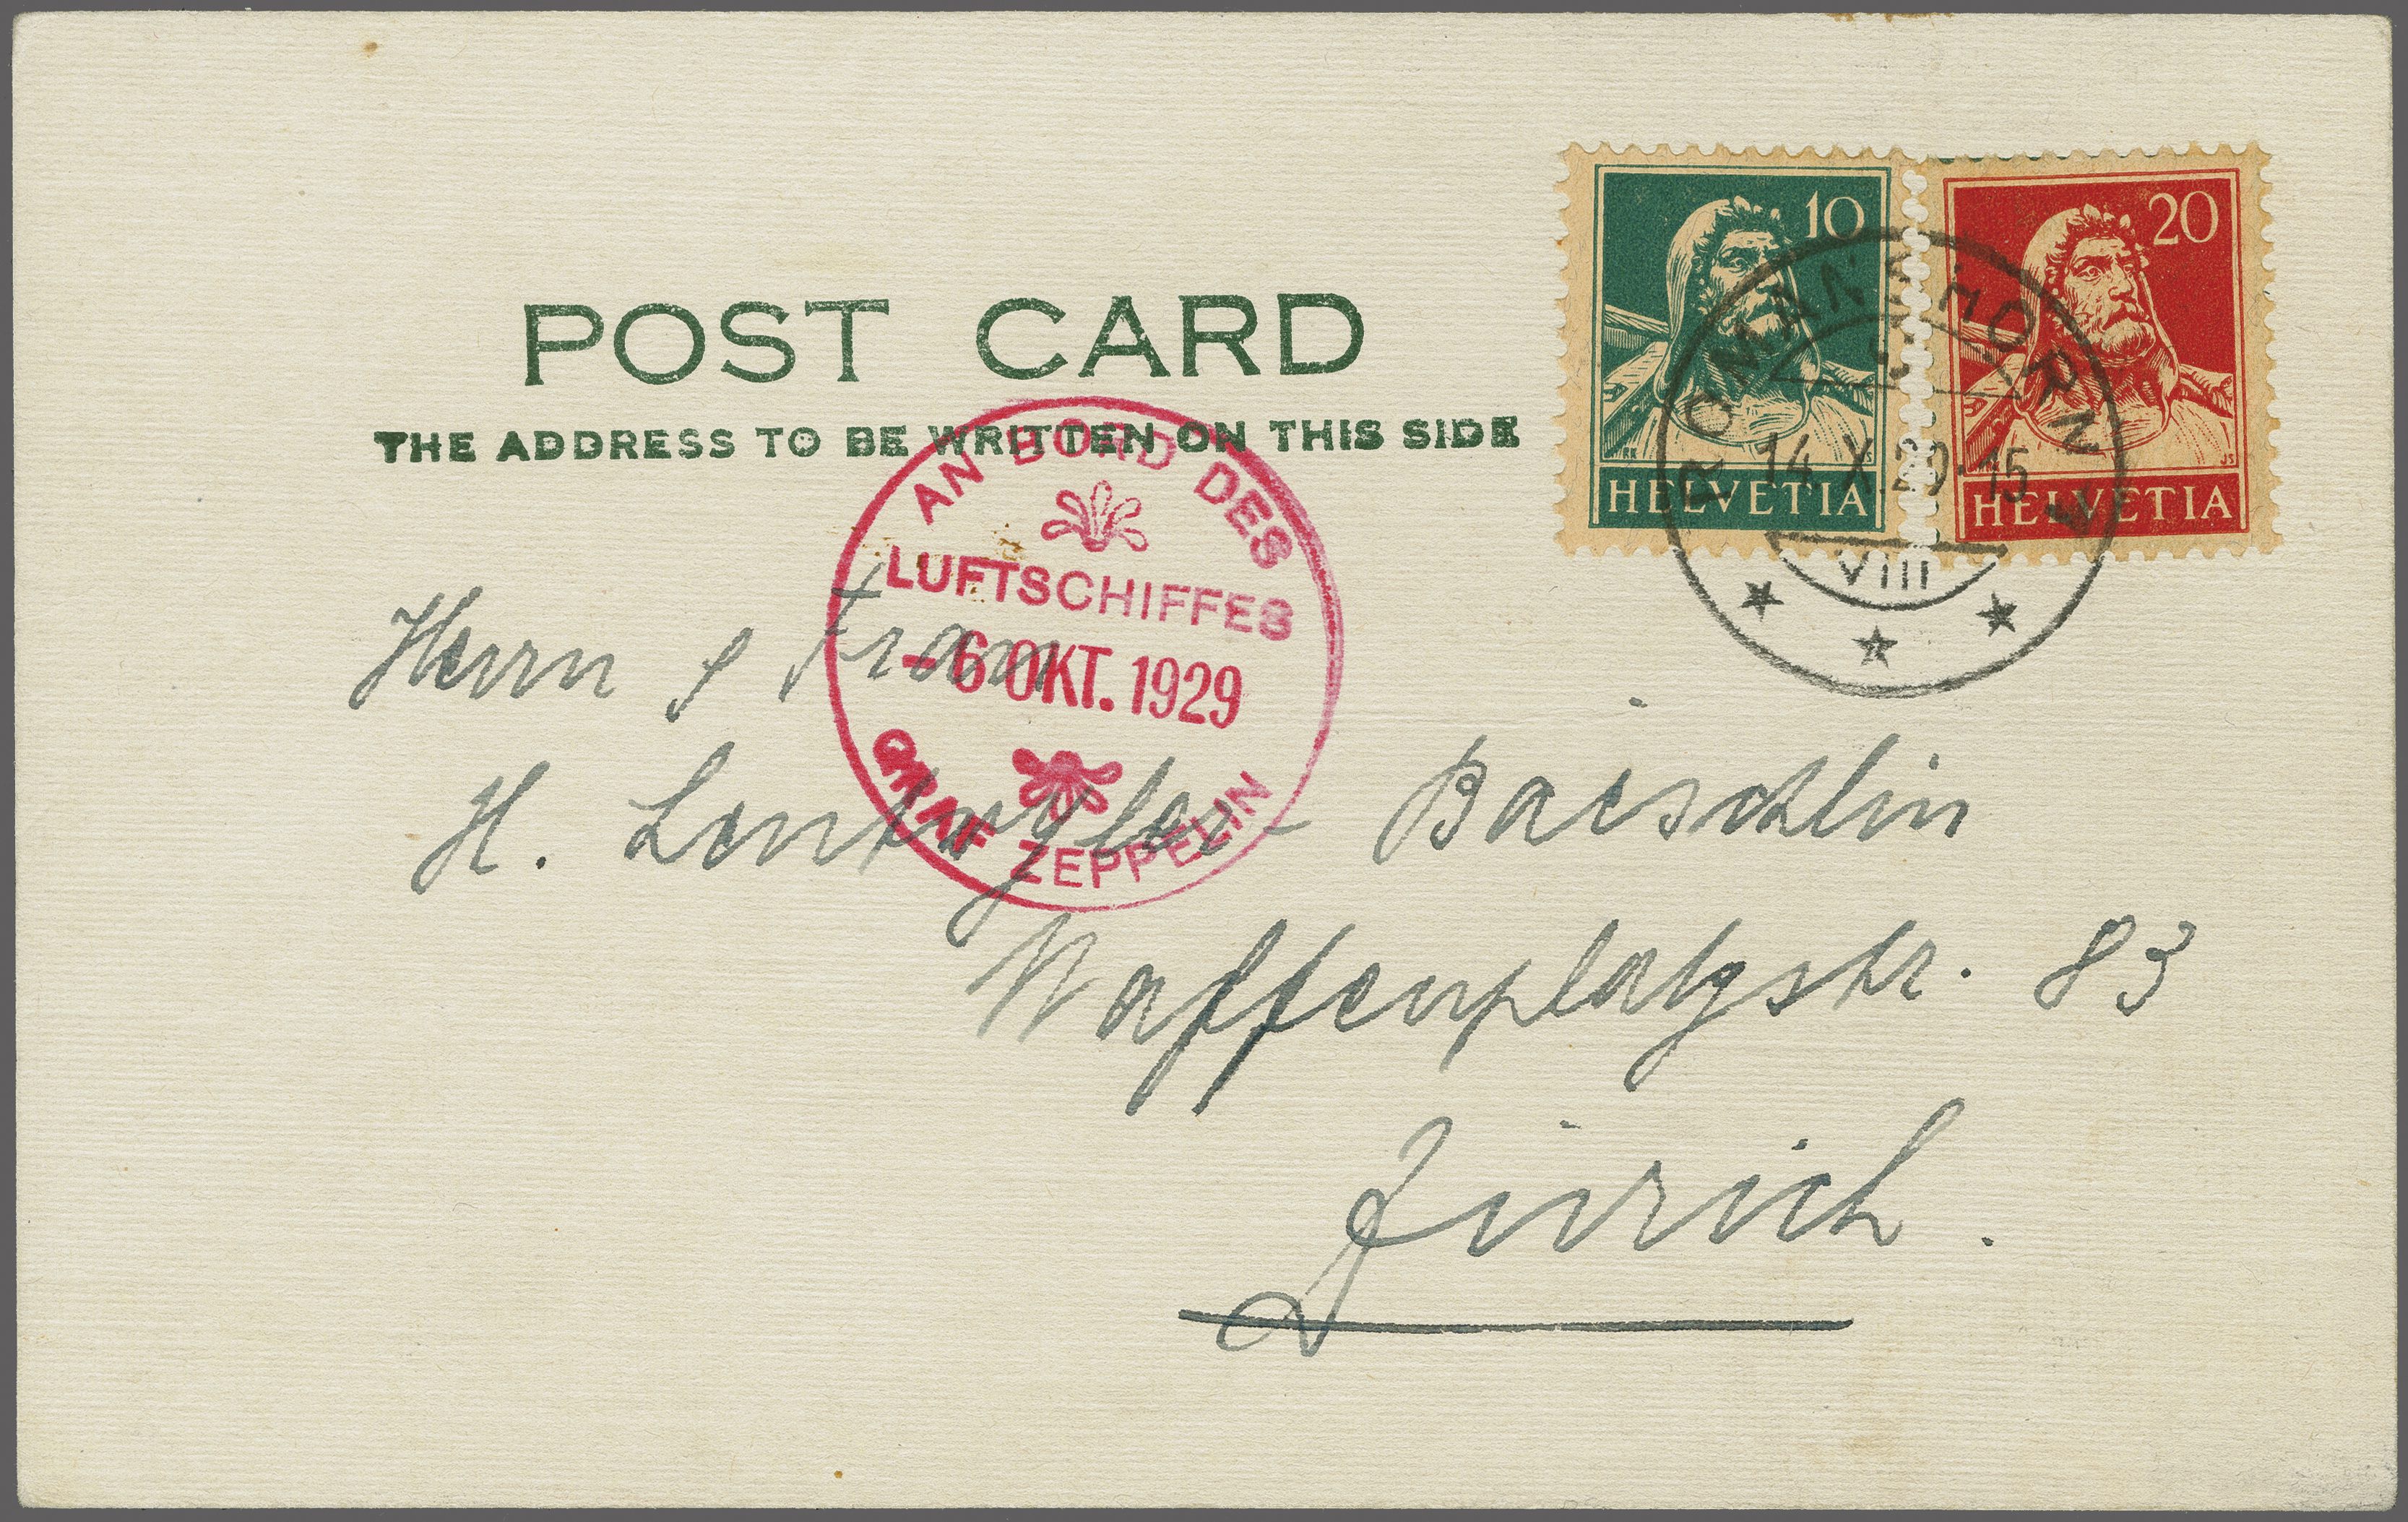 POST CARD
THE ADDRESS TO BE WRITTEN ON THIS SIDE
10
HELVETIA
20
HELVETIA
ROMANSHORN
14.X.29.15
VIII
AN BORD DES
LUFTSCHIFFES
-6 OKT. 1929
GRAF ZEPPELIN
Herrn & Frau
H. Lentwyler- Baeschlin
Waffenplatzstr. 83
Zürich.